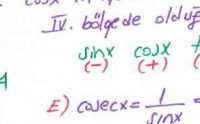 IV. bölgede olduğ
sinx cosx
(-) (+)
E) cosecx = 1/sinx =